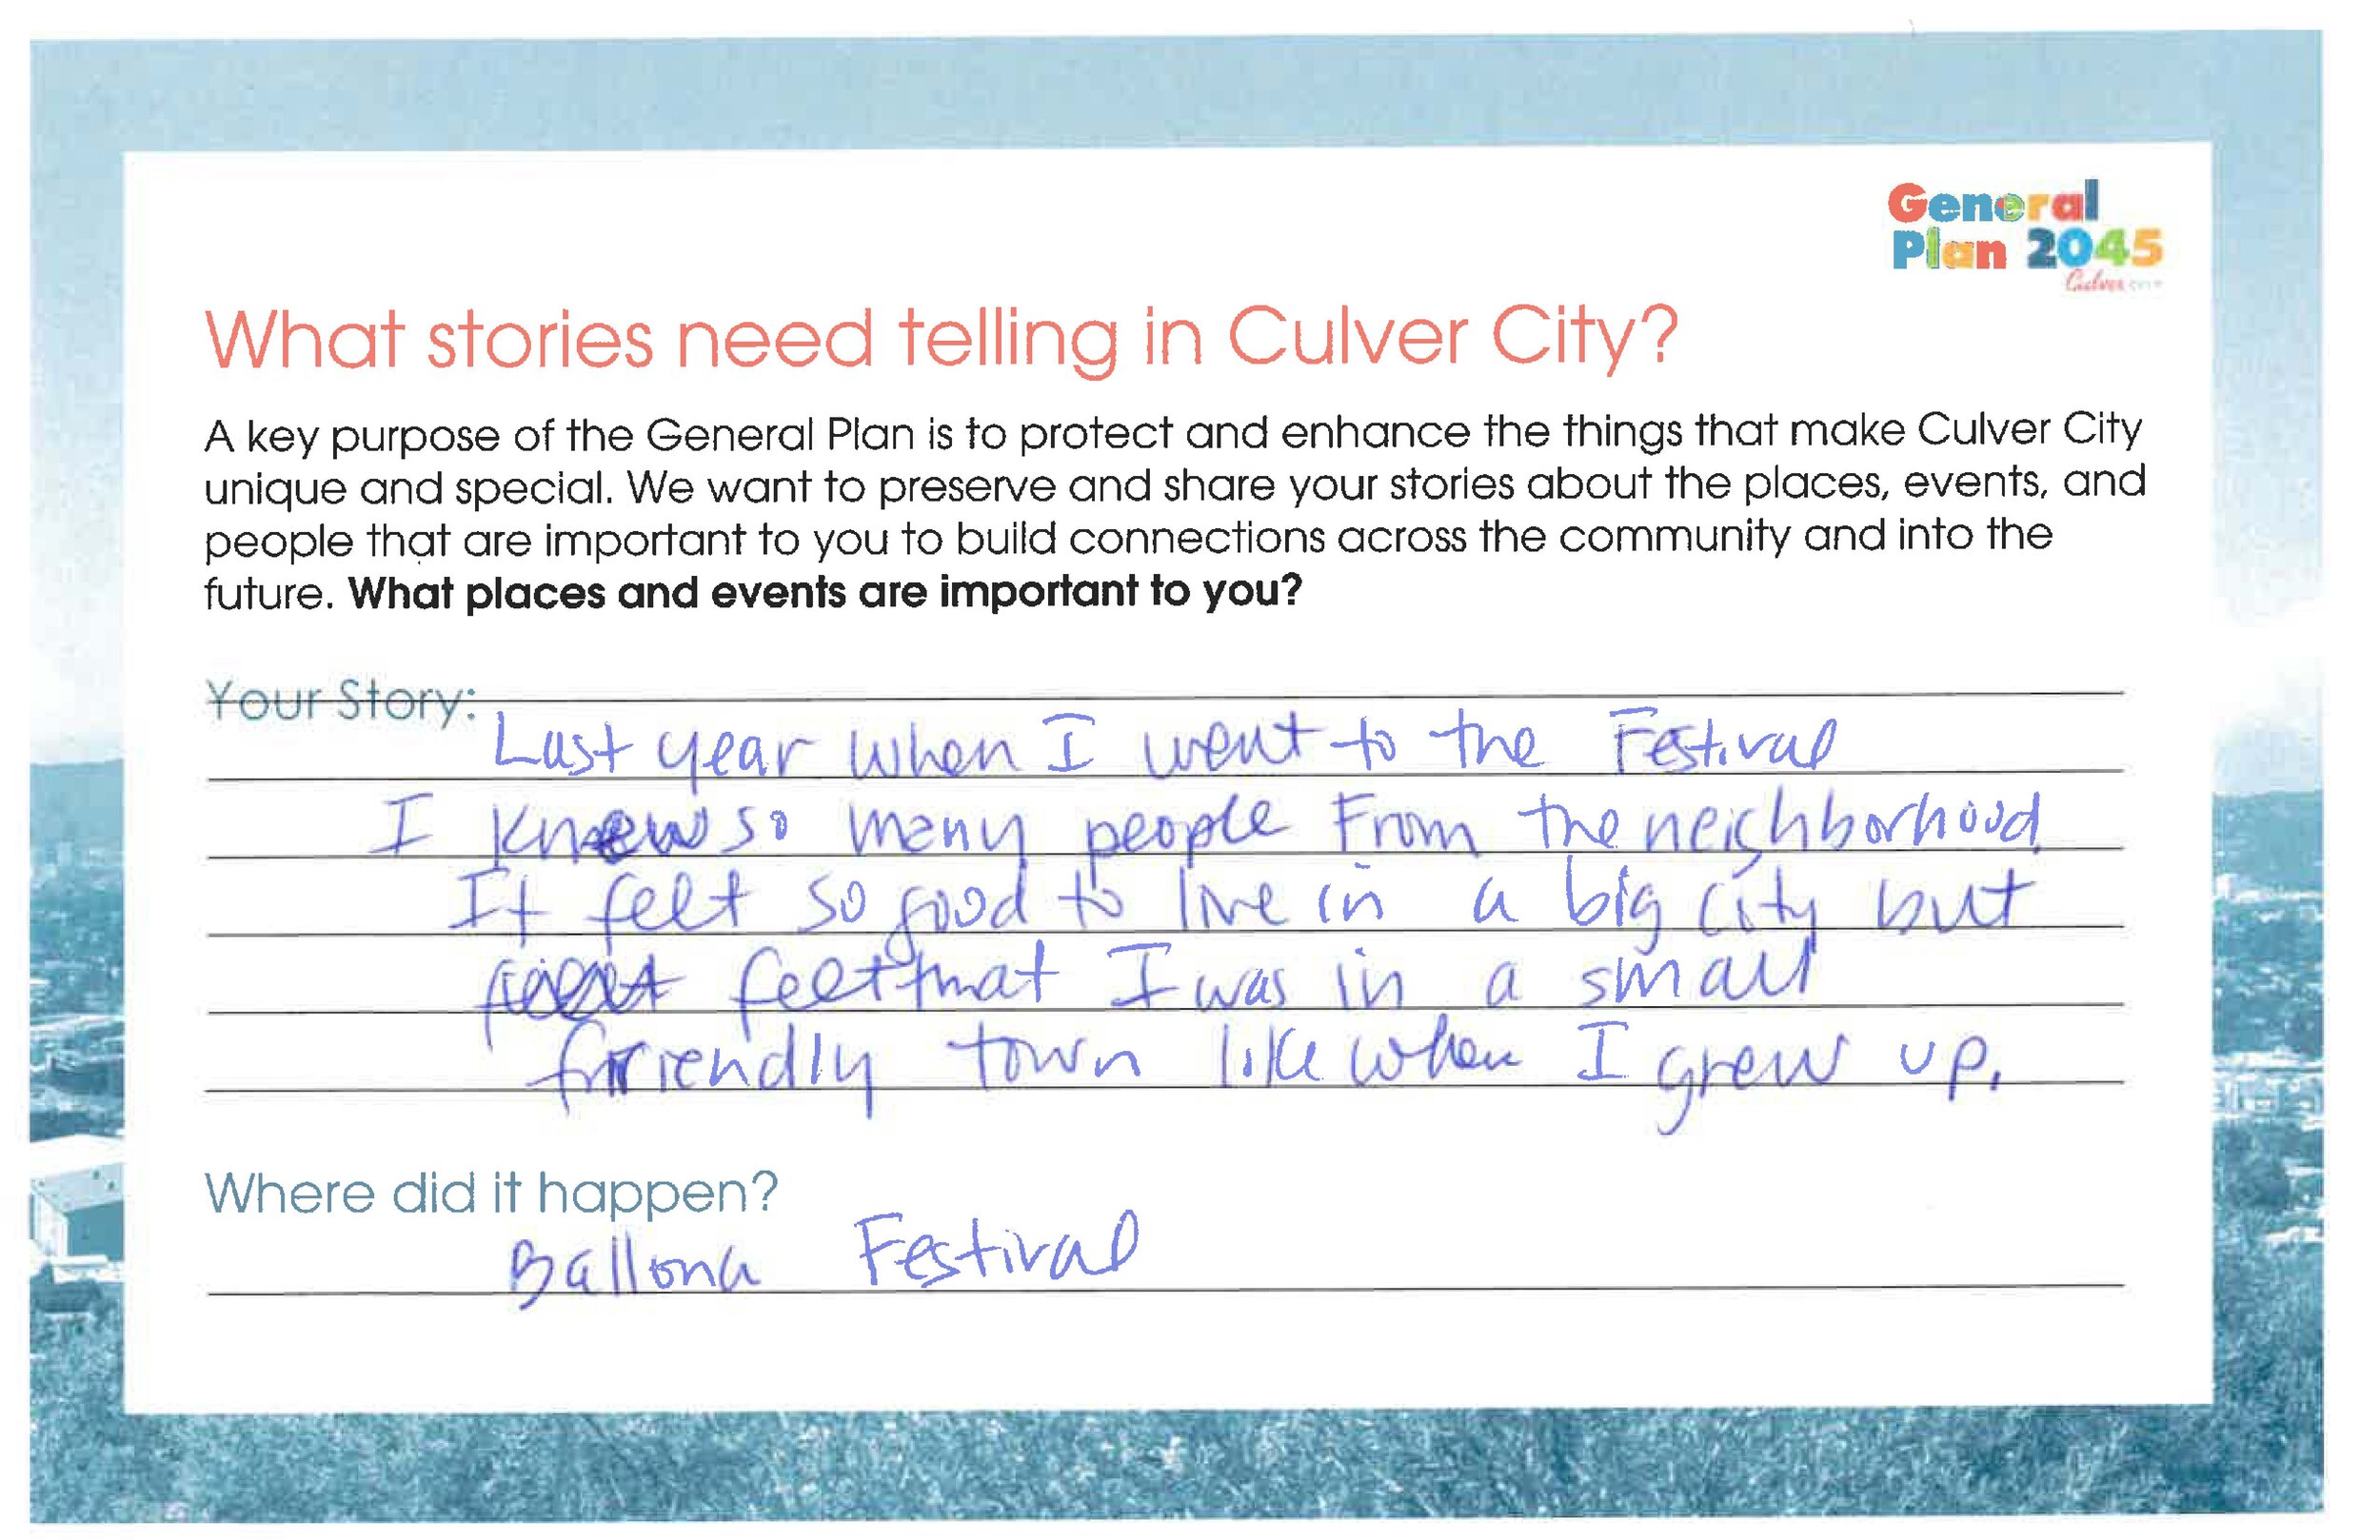 General
Plan 2045
Culver CITY
What stories need telling in Culver City?
A key purpose of the General Plan is to protect and enhance the things that make Culver City
unique and special. We want to preserve and share your stories about the places, events, and
people that are important to you to build connections across the community and into the
future. What places and events are important to you?
Your Story:
Last year when I went to the Festival
I knew so many people From the neighborhood.
It felt so good to live in a big city but
feel that I was in a small
friendly town like when I grew up.
Where did it happen?
Ballona Festival